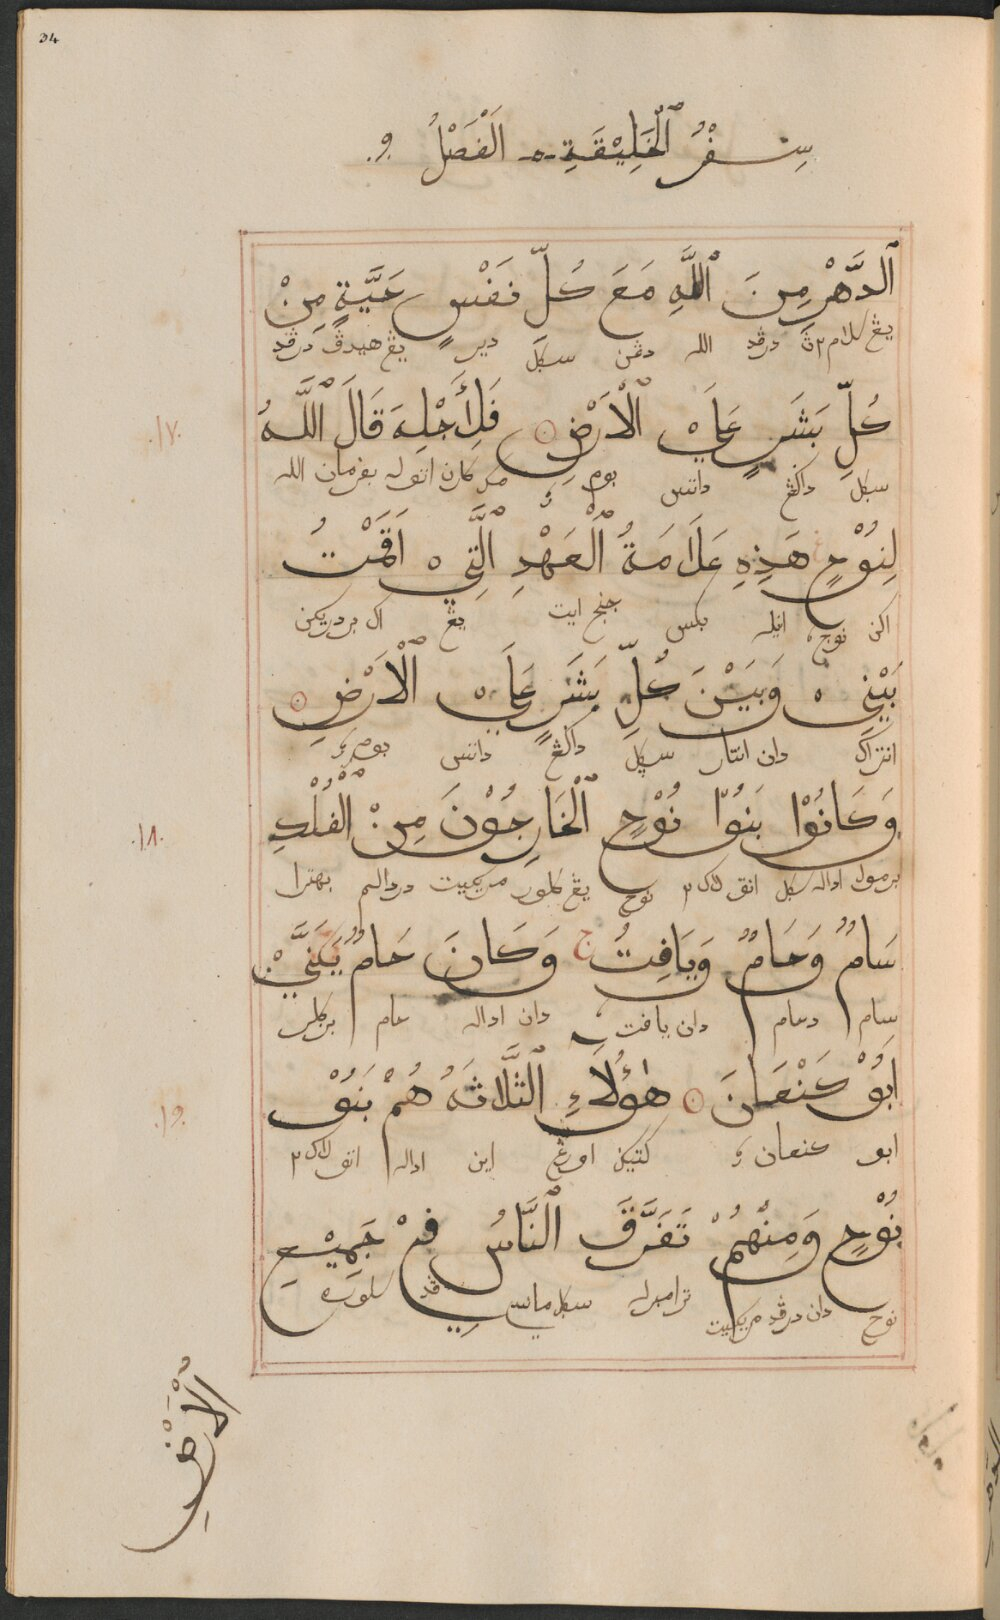 34
سِفْرُ ٱلْخَلِيْقَةِ ـ ٱلْفَصْلُ ٩.
ٱلدَّهْرِ مِنَ ٱللَّهِ مَعَ كُلِّ نَفْسٍ حَيَّةٍ مِنْ
يڠ كلام٢ن درڤد الله دڠن سكل ديري يڠ هيدڤ درڤد
١٧.
كُلِّ بَشَرٍ عَلَيْ ٱلْأَرْضِ ۞ فَلِأَجْلِهِ قَالَ ٱللَّهُ
سكل داڬڠ داتس بوم مك كارن اتوله بفرمان الله
لِنُوْحٍ هَذِهِ عَلَامَةُ ٱلْعَهْدِ ٱلَّتِيْ اَقَمْتُ
اكن نوح، اينله بكس جنجي ايت يڠ اك بردريكن
بَيْنِيْ وَبَيْنَ كُلِّ بَشَرٍ عَلَيْ ٱلْأَرْضِ ۞
انتراك دان انتار سكل داڬڠ داتس بوم
١٨.
وَكَانُوْا بَنُوْا نُوْحٍ ٱلْخَارِجُوْنَ مِنْ ٱلْفُلْكِ
برمول اداله سكل انق لاك٢ نوح يڠ كلور مريكيت دردالم بهترا
سَامُ وَحَامُ وَيَافِتُ ج وَكَانَ حَامُ يُكَنَّيْ
سام دحام دان يافت دان اداله حام بركلر
اَبُوْ كَنْعَانَ ۞ هٰؤُلَاءِ ٱلثَّلَاثَةُ هُمْ بَنُوْ
ابو كنعان كتيك اورڠ اين اداله انق لاك٢
١٩.
نُوْحٍ وَمِنْهُمْ تَفَرَّقَ ٱلنَّاسُ فِيْ جَمِيْعِ
نوح دان درڤد مريكيت ترامبرله سكل مانسي ڤد سلوره
ٱلْأَرْضِ